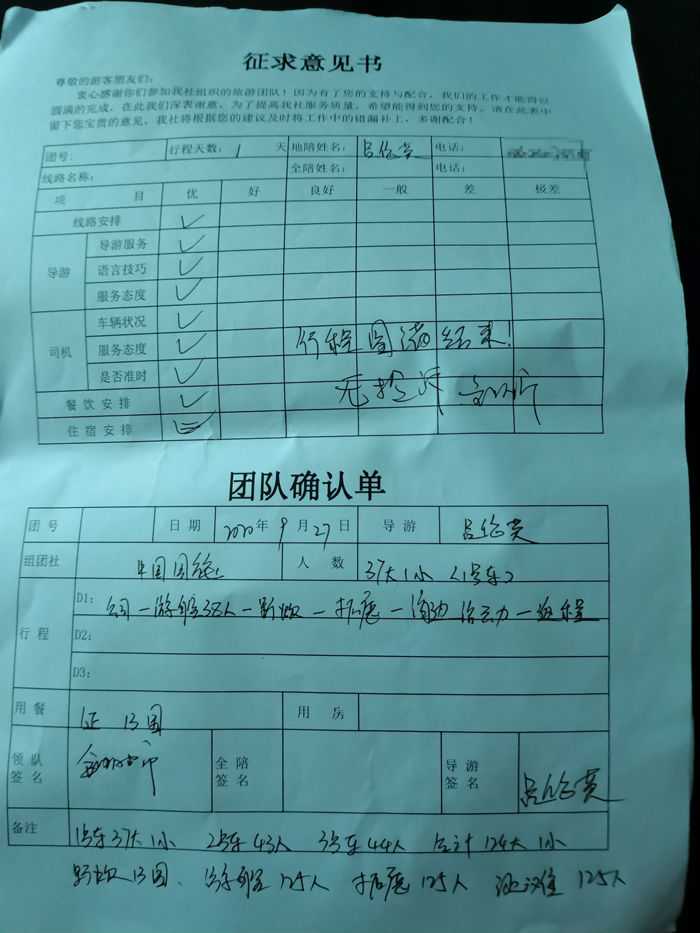 征求意见书
尊敬的游客朋友们：
衷心感谢你们参加我社组织的旅游团队！因为有了您的支持与配合，我们的工作才能得以
圆满的完成，在此我们深表谢意。为了提高我社服务质量，希望能得到您的支持。请在此表中
留下您宝贵的意见，我社将根据您的建议及时将工作中的错漏补上，多谢配合！
团号： 行程天数：1 天 地陪姓名：吕伦英 电话：
线路名称： 全陪姓名： 电话：
项 目 优 好 良好 一般 差 极差
线路安排 ✓
导游 导游服务 ✓
语言技巧 ✓
服务态度 ✓
司机 车辆状况 ✓
服务态度 ✓
行程圆满结束！
是否准时 ✓
无投诉
餐饮安排 ✓
住宿安排
团队确认单
团号 日期 2020年9月27日 导游 吕伦英
组团社 中国国旅 人数 37大1小（1号车）
行程 D1： 公司—游船38人—野炊—拓展—活动—返程
D2：
D3：
用餐 13围 用房
领队签名 全陪签名 导游签名 吕伦英
备注 1号车37大1小 2号车43人 3号车44人 合计124大1小
野炊13围、游船125人 拓展125人 125人